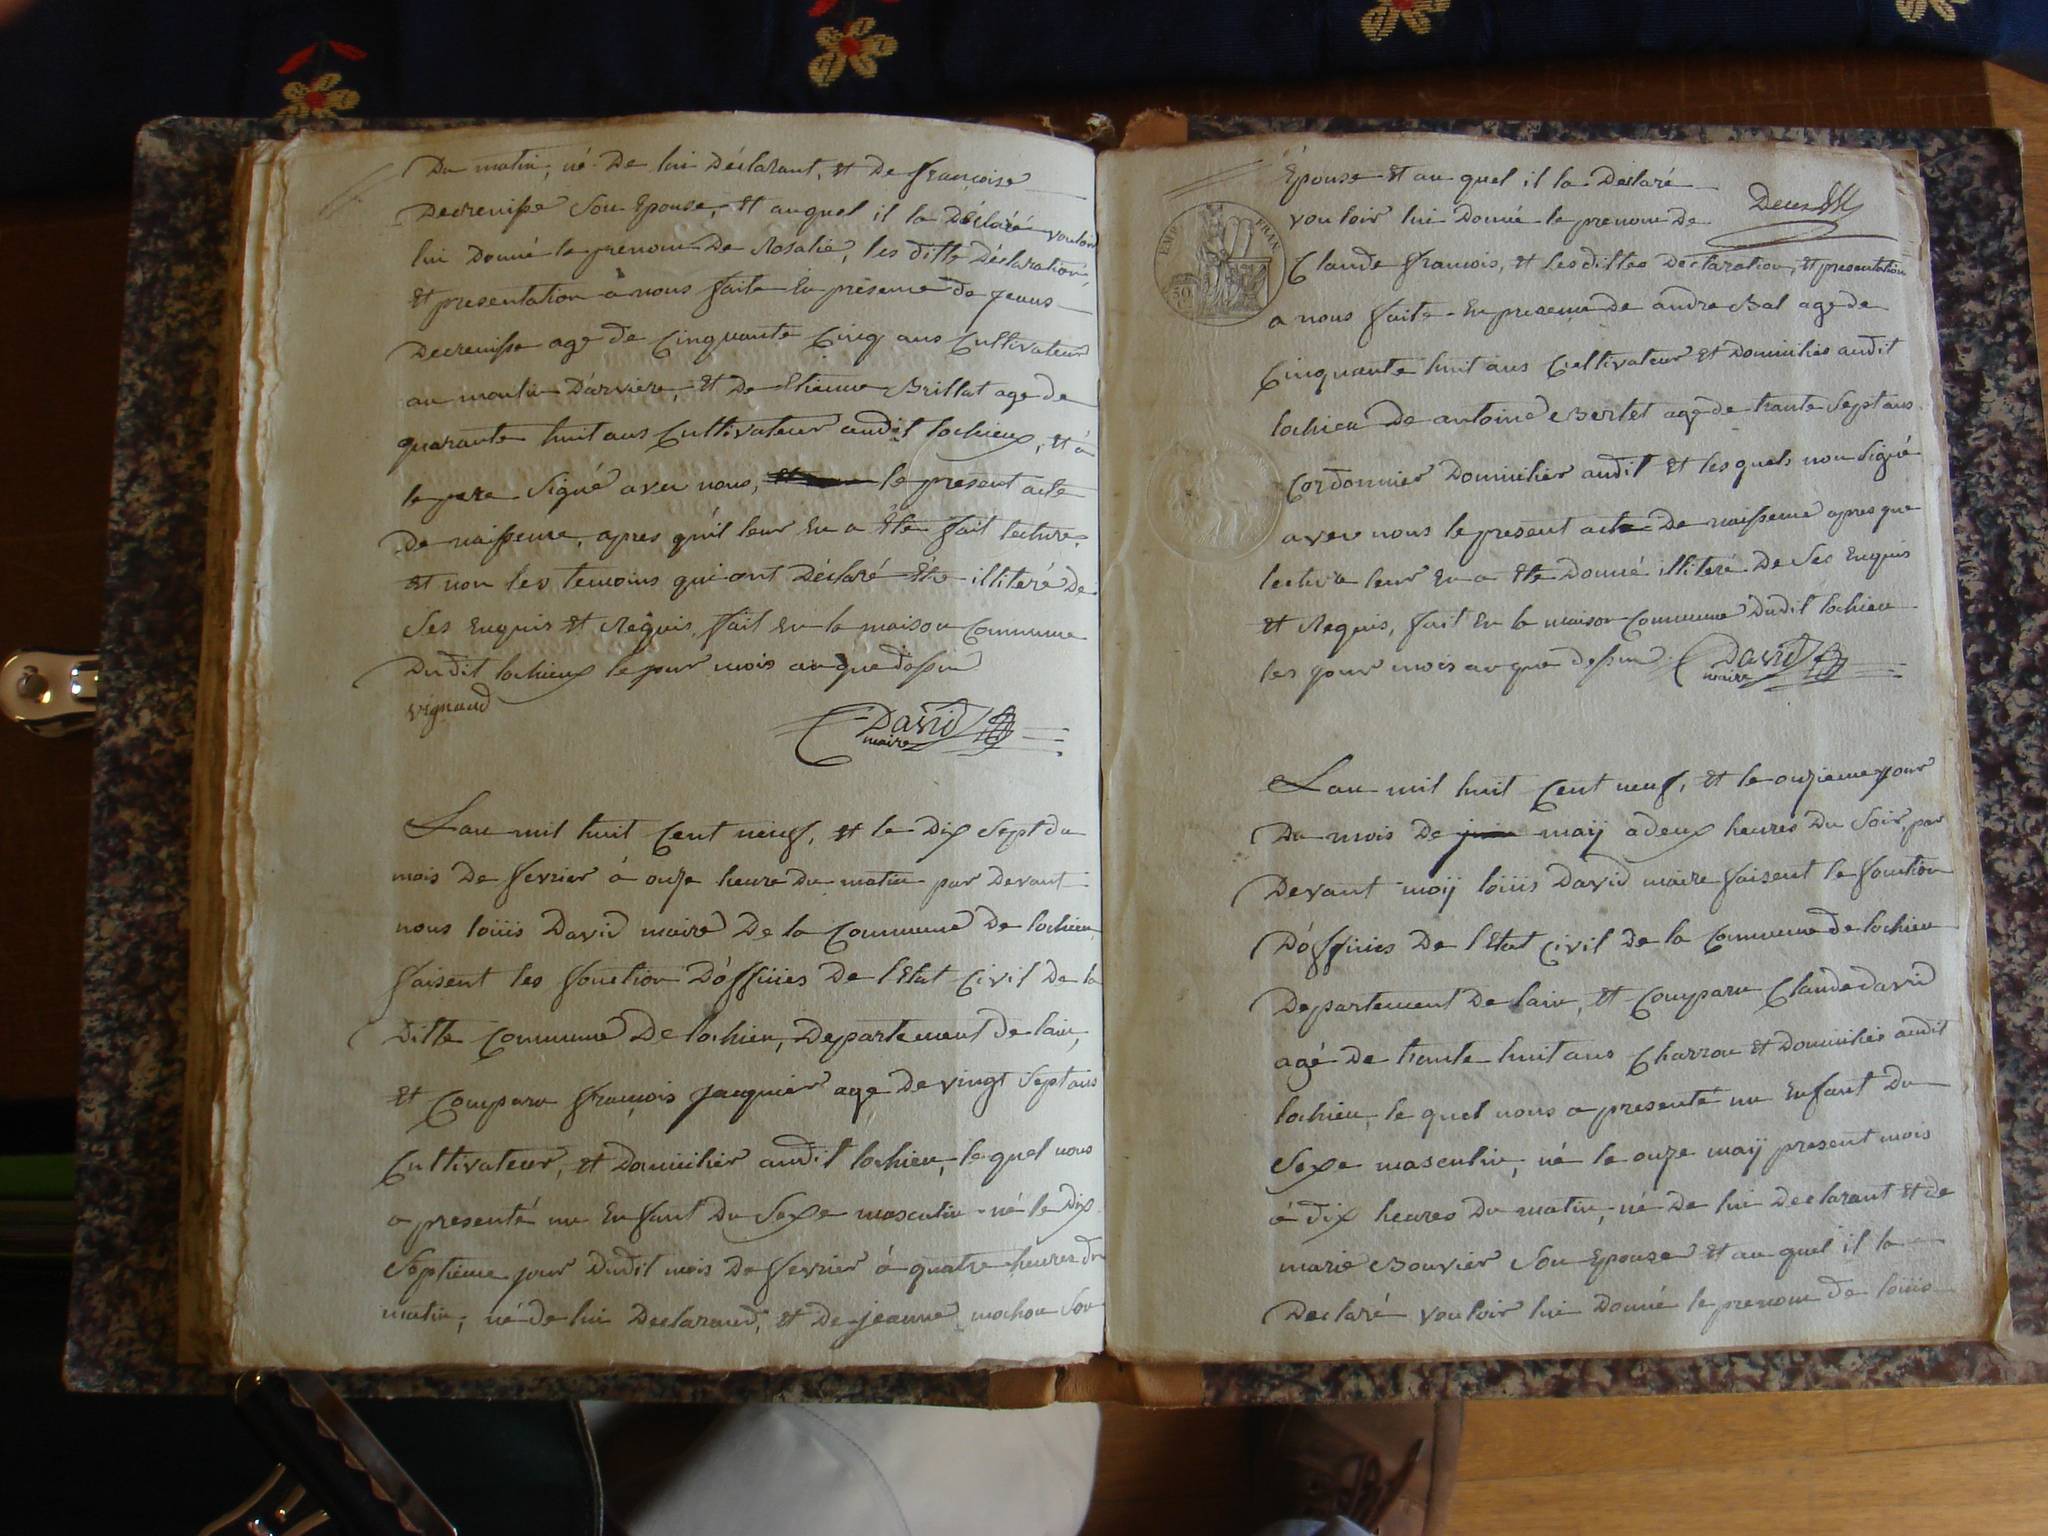 Du matin, né De lui Déclarant, et De françoise
Decrenisse Son Epouse, et auquel il la Déclaré vouloir
lui Donné le prenom De Rosalie, les ditte Déclaration,
et presentation a nous faite En présence de jeans
Decrenisse age de Cinquante Cinq ans Cultivateur
au moulin D'arviere, et De Etienne Brillat age de
quarante huit ans Cultivateur audit lochieux, et à
le pere Signé avec nous, le present acte
De naissence, apres qu'il leur En a Ete fait lecture,
et non les temoins qui ont Déclaré Etre illiteré De
Ses Enquis et Requis, fait En la maison Commune
Dudit lochieux le jour mois an que dessu
vignand
David
maire
Lan mil huit Cent neuf, et le Dix Sept du
mois De fevrier à onze heure Du matin par Devant
nous loüis David maire De la Commune De lochieu
faisent les fonction D'offiiies De l'Etat Civil De la
Ditte Commune De lochieu, Departement De lain,
et Comparu françois jacquier age De vingt Sept ans
Cultivateur, et Domicilier audit lochieu, le quel nous
a presenté un Enfant Du Sexe masculin né le Dix
Septieme jour Dudit mois De fevrier à quatre heures du
matin, né de lui Declarand, et De jeanne mochon Son
Epouse et au quel il la Declaré
vouloir lui Donné le prenom De
EMP FRAN
50
Claude francois, et les dittes Declaration, et presentation
a nous faite En presence de andre Bal age de
Cinquante huit ans Cultivateur et Domicilies audit
lochieu De antoine Bertet age de trante Sept ans
Cordonnier Domicilier audit et les quels non Signé
avec nous le present acte De naissence apres que
lectura leur En a Ete Donné illiteré De Ses Enquis
et Requis, fait En la maison Commune Dudit lochieu
les jour mois an que dessu David
maire
Lan mil huit Cent neuf, et le onzieme jour
Du mois De juin maij a deux heures Du Soir, par
Devant moij loüis David maire faisent le fonction
D'offiiies De l'Etat Civil De la Commune de lochieu
Departement De lain, et Comparu Claude david
agé De trante huit ans Charron et Domicilié audit
lochieu, le quel nous a presenté un Enfant Du
Sexe masculin, né le onze maij present mois
à Dix heures Du matin, né De lui Declarant et de
marie Bouvier Son Epouse et au quel il la
Declaré vouloir lui Donné le prenom de loüis